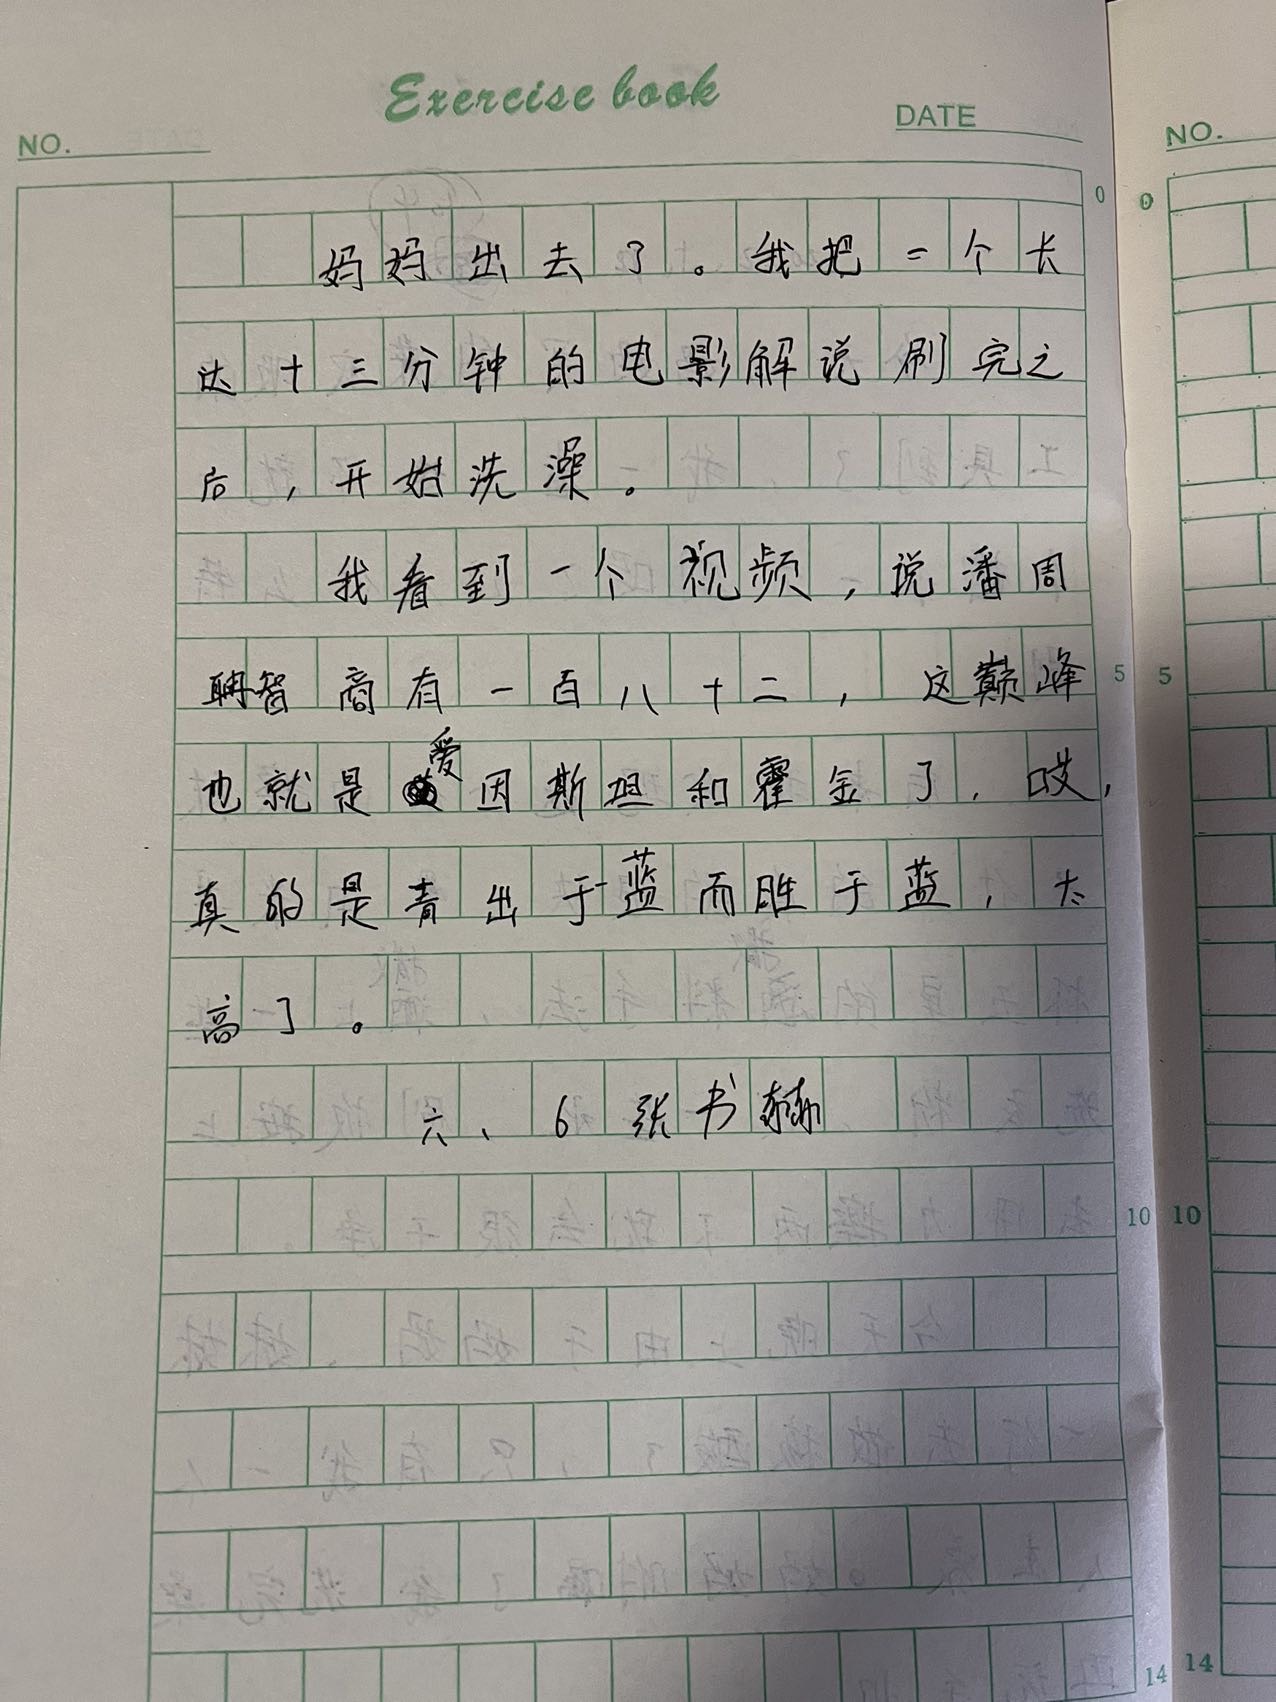 Exercise book
NO.
DATE
NO.
0
0
妈妈出去了。我把一个长
达十三分钟的电影解说刷完之
后，开始洗澡。
我看到一个视频，说潘周
聃智商有一百八十二，这巅峰
5
5
也就是爱因斯坦和霍金了，哎，
真的是青出于蓝而胜于蓝，太
高了。
六、6张书赫
10
10
14
14